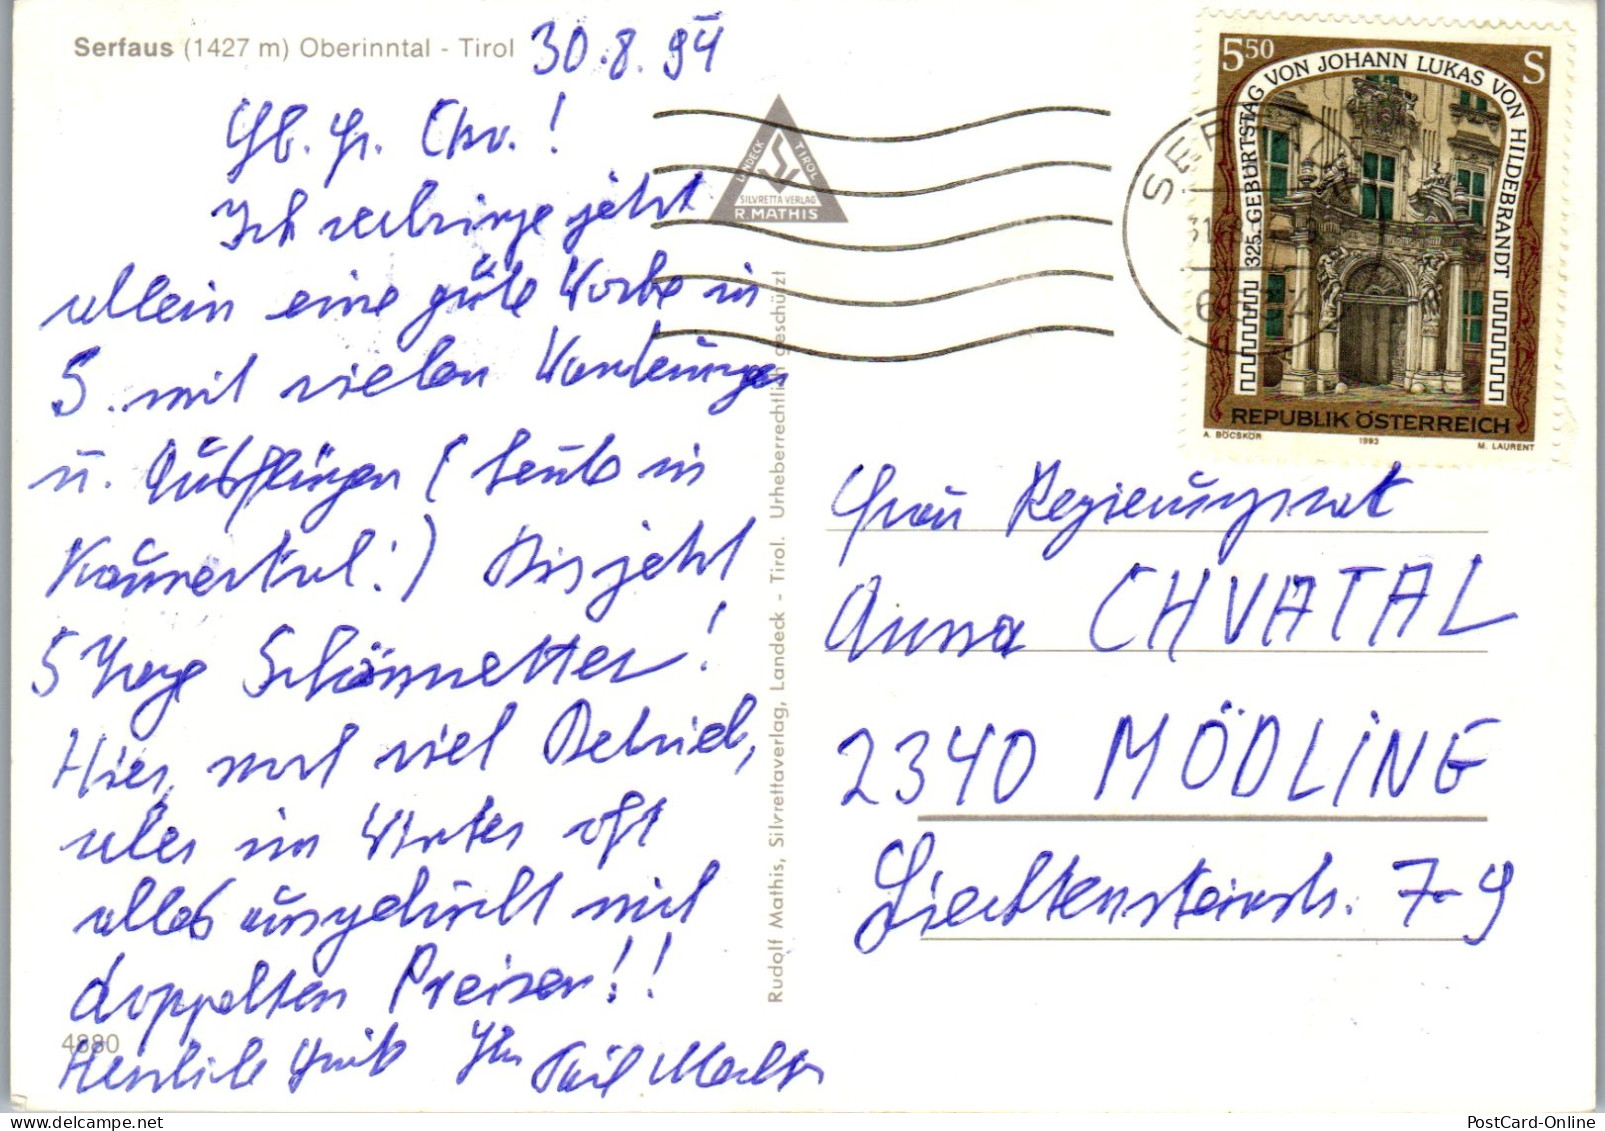 Serfaus (1427 m) Oberinntal - Tirol
30.8.94
Lb. Fr. Chv.!
Ich verbringe jetzt
allein eine gute Woche in
S. mit vielen Wanderungen
u. Ausflügen (heute in
Kaunertal!) Bis jetzt
5 Tage Schönwetter!
Hier, nicht viel Betrieb,
aber im Winter oft
alles ausgebucht mit
doppelten Preisen!!
Herzliche Grüße Ihr
4880
LANDECK TIROL
SILVRETTA VERLAG
R. MATHIS
Rudolf Mathis, Silvrettaverlag, Landeck - Tirol. Urheberrechtlich geschützt
5 50 S
325. GEBURTSTAG VON JOHANN LUKAS VON HILDEBRANDT
REPUBLIK ÖSTERREICH
A. BÖCSKÖR 1993 M. LAURENT
Frau Regierungsrat
Anna CHVATAL
2340 MÖDLING
Liechtensteinstr. 7-9
PostCard-Online